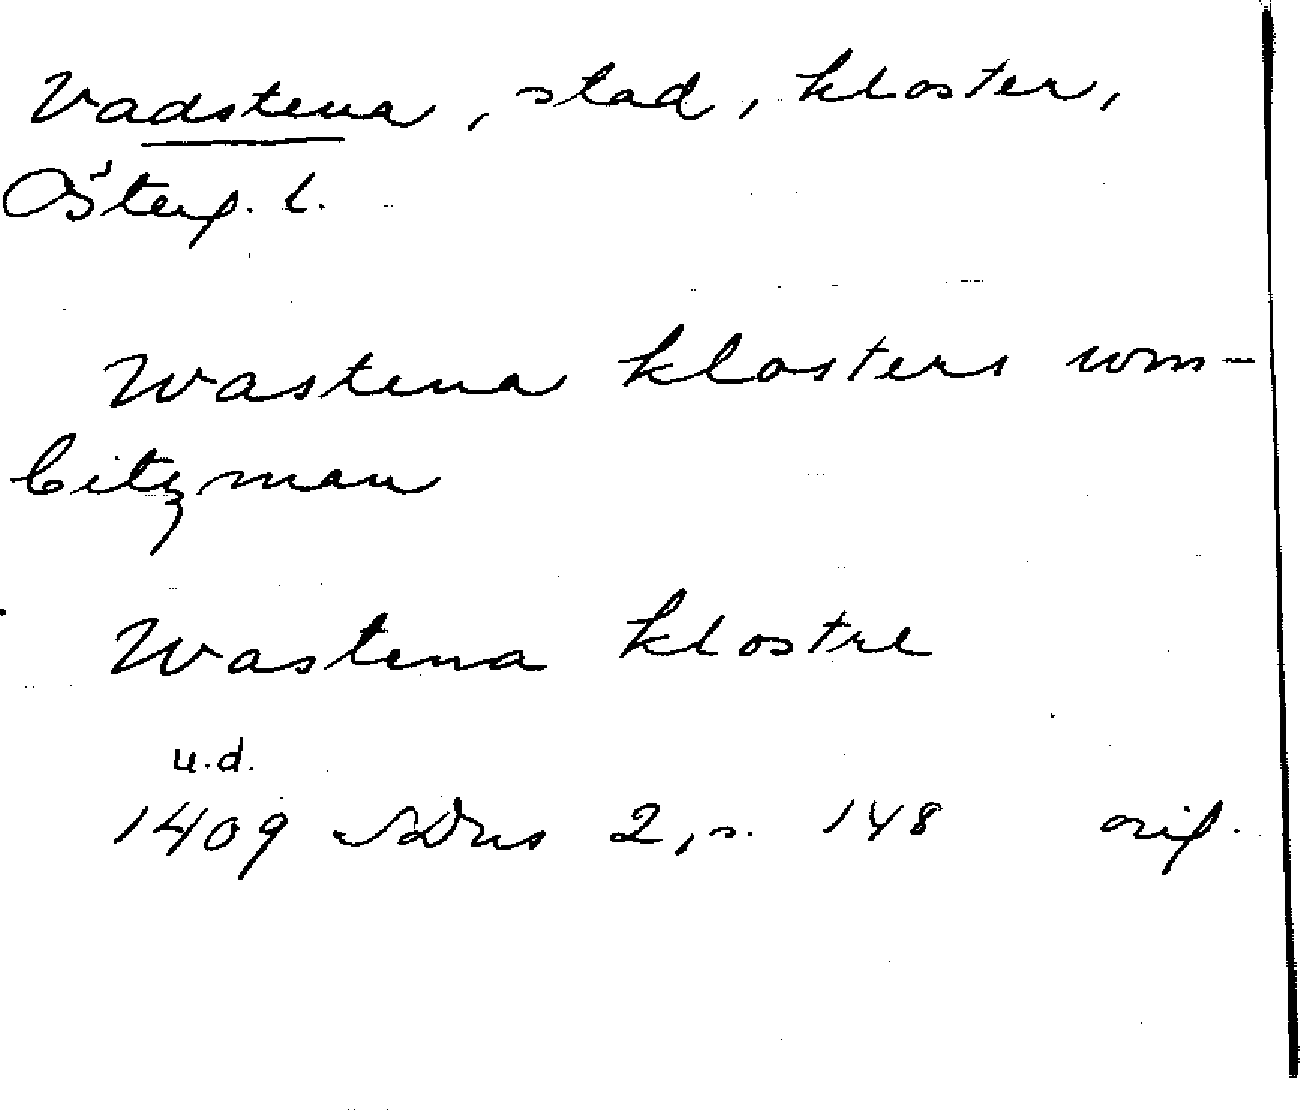 Vadstena, stad, kloster,
Österg. l.
Wastena klosters wm-
bitzman
Wastena klostre
u.d.
1409 SDns 2, s. 148 orig.